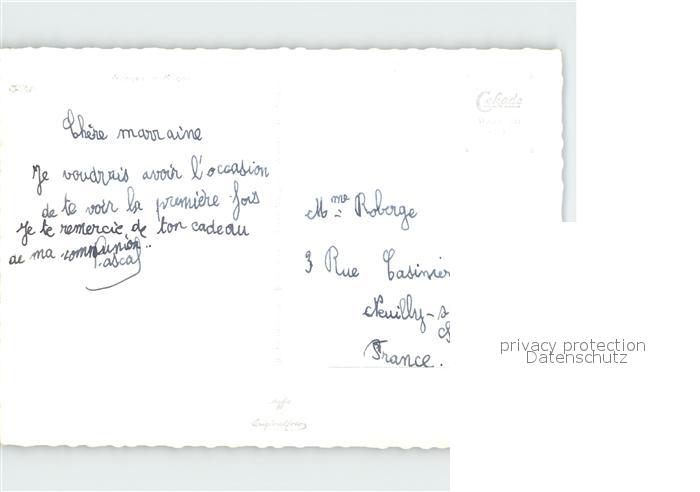 Chère marraine
Je voudrais avoir l'occasion
de te voir la première fois
Je te remercie de ton cadeau
de ma communion..
Pascal
Cekade
Mme Roberge
3 Rue Casimir
Neuilly-s
France.
privacy protection
Datenschutz